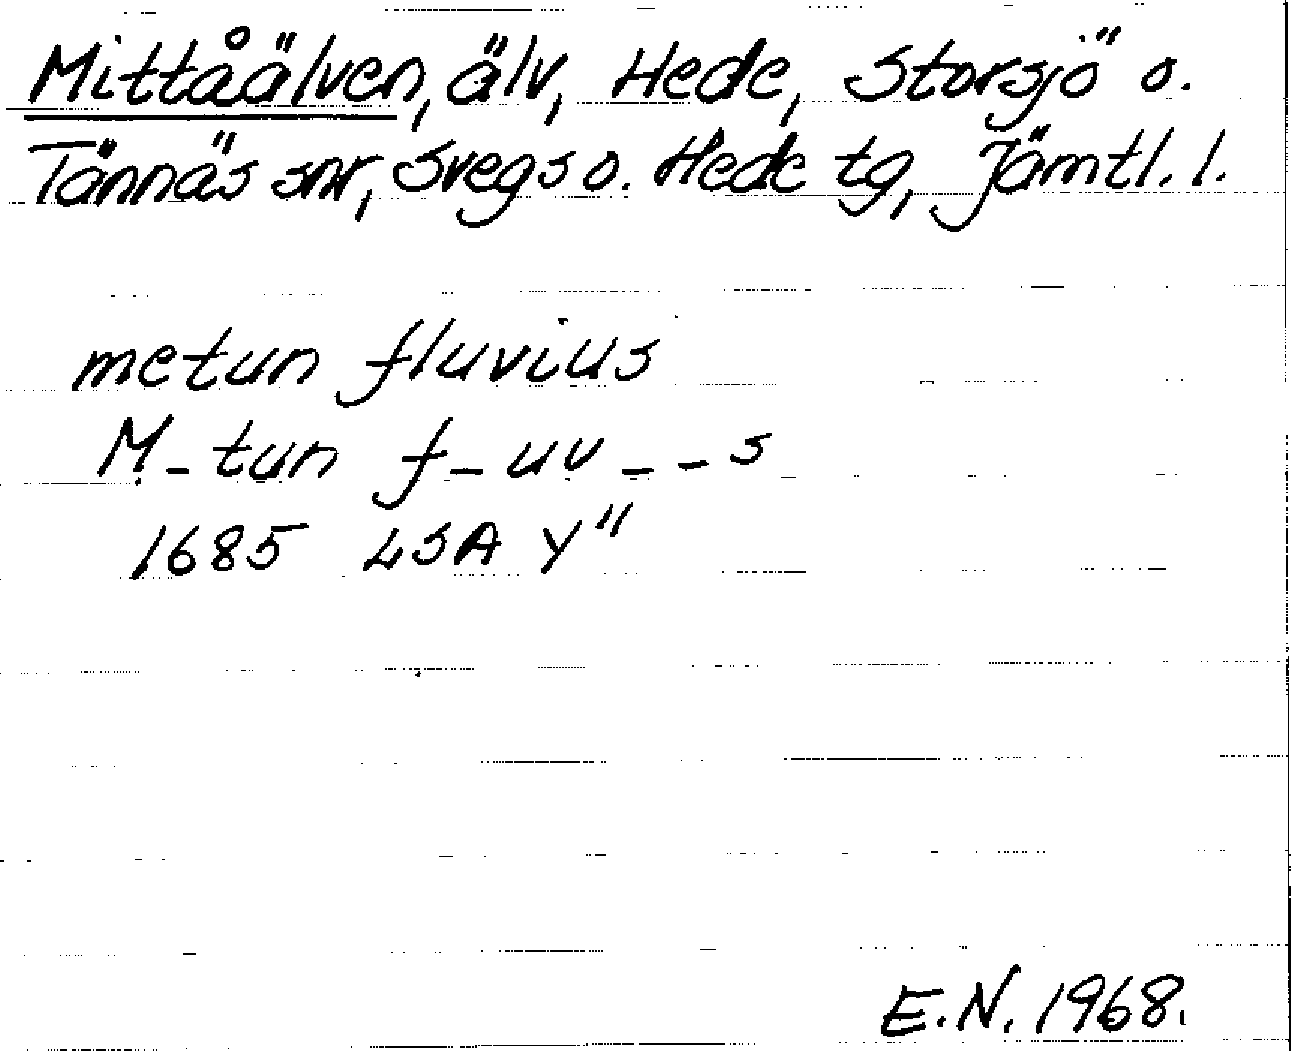 Mittåälven, älv, Hede, Storsjö o.
Tännäs snr, Svegs o. Hede tg, Jämtl. l.
metun fluvius
M_tun f_uv__s
1685 LSA Y"
E.N. 1968.